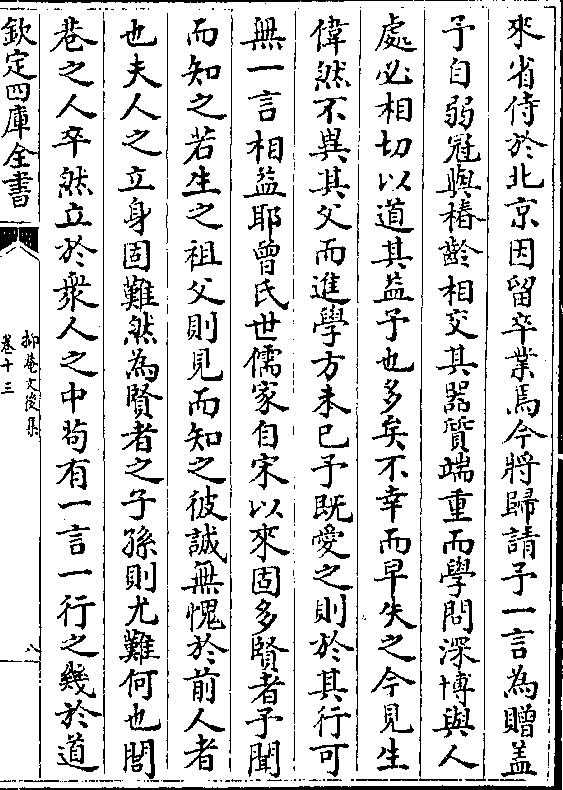 來省侍於北京因留卒業焉今將歸請予一言為贈盖
予自弱冠與椿齡相交其器質端重而學問深博與人
處必相切以道其益予也多矣不幸而早失之今見生
偉然不異其父而進學方未已予既愛之則於其行可
無一言相益耶曾氏世儒家自宋以來固多賢者予聞
而知之若生之祖父則見而知之彼誠無愧於前人者
也夫人之立身固難然為賢者之子孫則尤難何也閭
巷之人卒然立於衆人之中茍有一言一行之幾於道
欽定四庫全書
抑菴文後集
卷十三
八